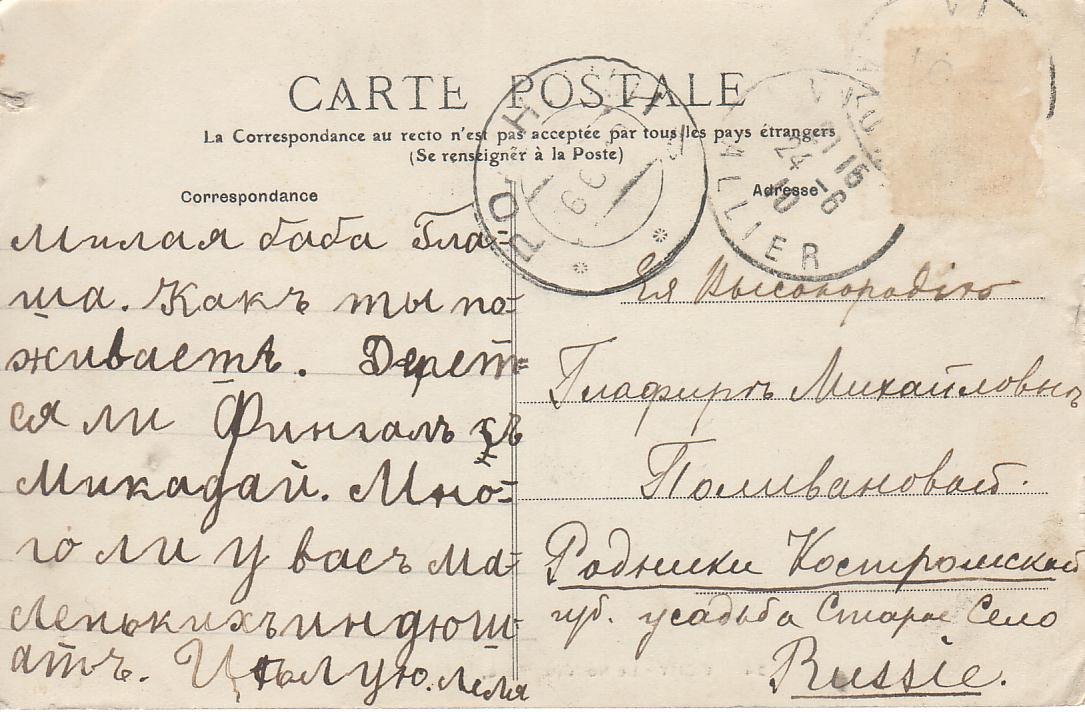 CARTE POSTALE
La Correspondance au recto n'est pas acceptée par tous les pays étrangers
(Se renseigner à la Poste)
Correspondance
Adresse
ALLIER
24-6
10
милая баба Гла-
ша. Какъ ты по-
живаешь. Дерет-
ся ли Фингалъ съ
Микадай. Мно-
го ли у васъ ма-
леньких индюш-
атъ. Цѣлую. Леля
Ея Высокородію
Глафирѣ Михайловнѣ
Поливановой.
Родники Костромской
губ. усадьба Старое Село
Russie.